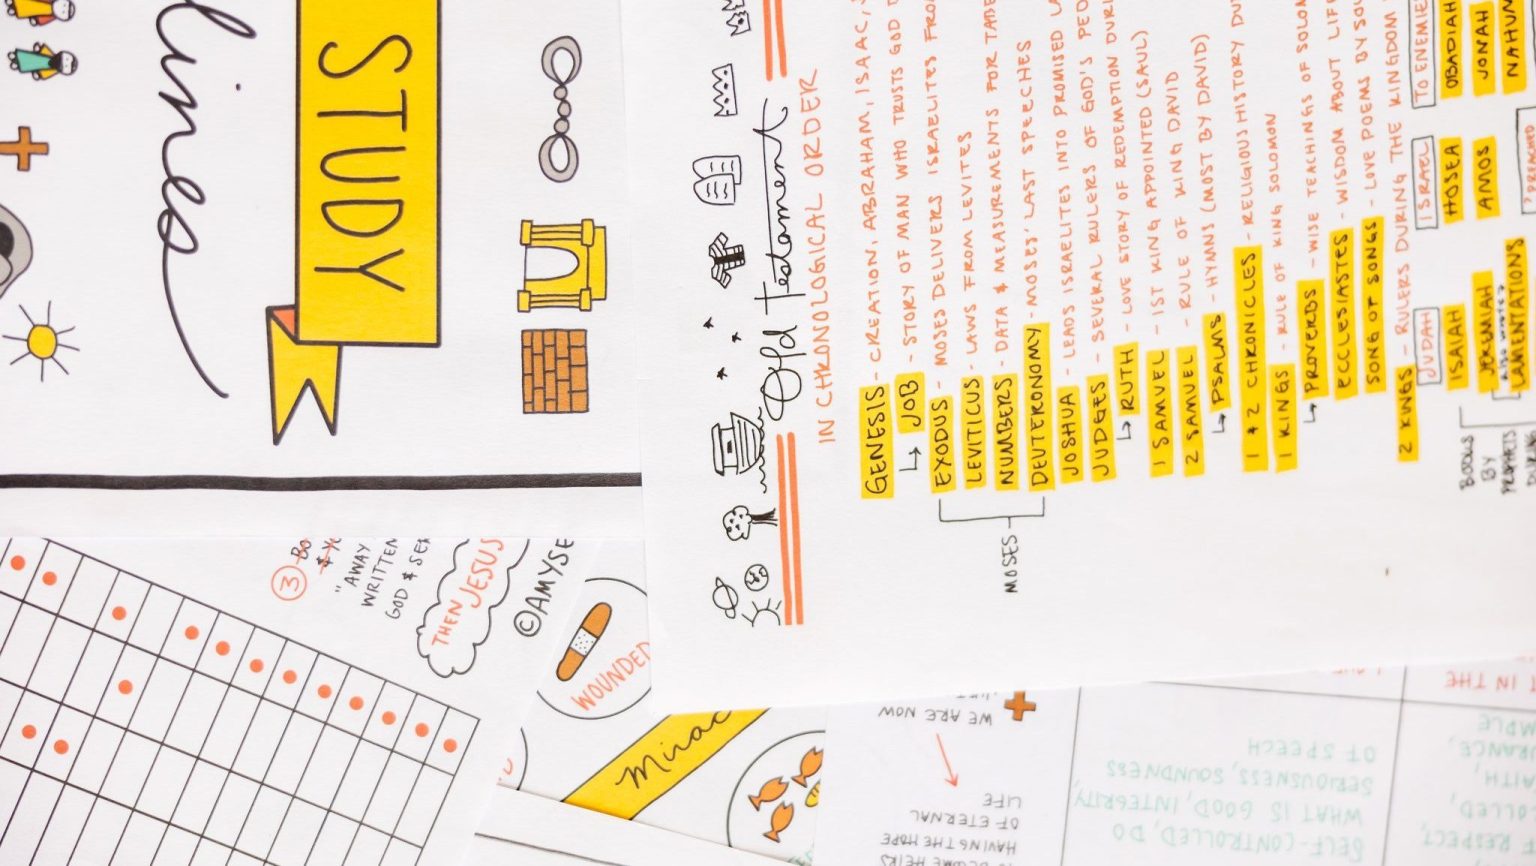 lines
STUDY
Old Testament
IN CHRONOLOGICAL ORDER
GENESIS - CREATION, ABRAHAM, ISAAC,
↳ JOB - STORY OF MAN WHO TRUSTS GOD
EXODUS - MOSES DELIVERS ISRAELITES
LEVITICUS - LAWS FROM LEVITES
NUMBERS - DATA & MEASUREMENTS FOR
DEUTERONOMY - MOSES' LAST SPEECHES
MOSES
JOSHUA - LEADS ISRAELITES INTO PROMISED
JUDGES - SEVERAL RULERS OF GOD'S
↳ RUTH - LOVE STORY OF REDEMPTION
1 SAMUEL - 1ST KING APPOINTED (SAUL)
2 SAMUEL - RULE OF KING DAVID
↳ PSALMS - HYMNS (MOST BY DAVID)
1 & 2 CHRONICLES - RELIGIOUS HISTORY
1 KINGS - RULE OF KING SOLOMON
↳ PROVERBS - WISE TEACHINGS OF
ECCLESIASTES - WISDOM ABOUT LIFE
SONG OF SONGS - LOVE POEMS BY
2 KINGS - RULERS DURING THE KINGDOM
JUDAH ISRAEL TO ENEMIES
ISAIAH HOSEA OBADIAH
JEREMIAH AMOS JONAH
LAMENTATIONS NAHUM
BOOKS
BY
PROPHETS
3
"AWAY
WRITTEN
GOD &
THEN JESUS
WOUNDED
WE ARE NOW
HEIRS
HAVING THE HOPE
OF ETERNAL
LIFE
SELF-CONTROLLED, DO
WHAT IS GOOD, INTEGRITY,
SERIOUSNESS, SOUNDNESS
OF SPEECH
RESPECT,
IN THE